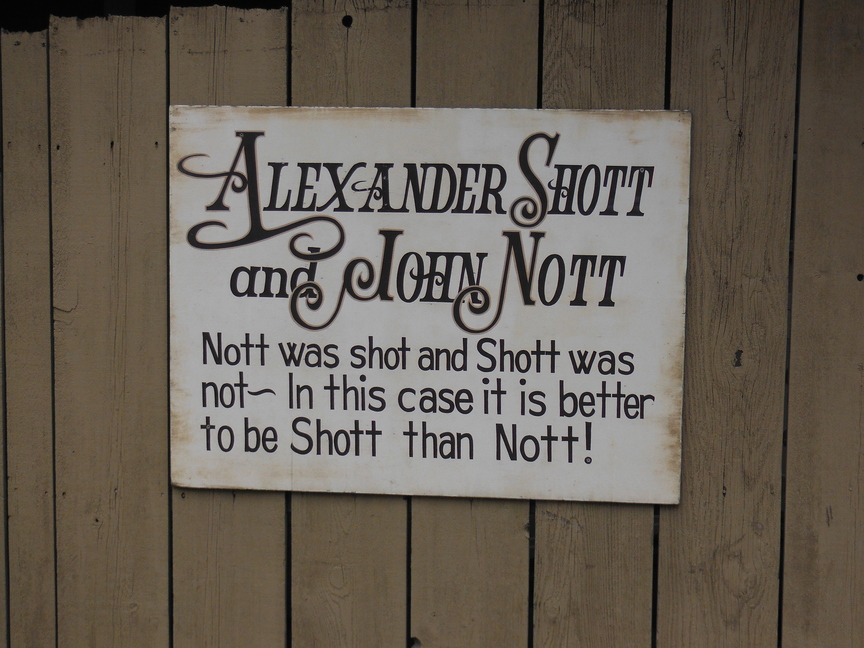 ALEXANDER SHOTT
and JOHN NOTT
Nott was shot and Shott was
not~ In this case it is better
to be Shott than Nott!